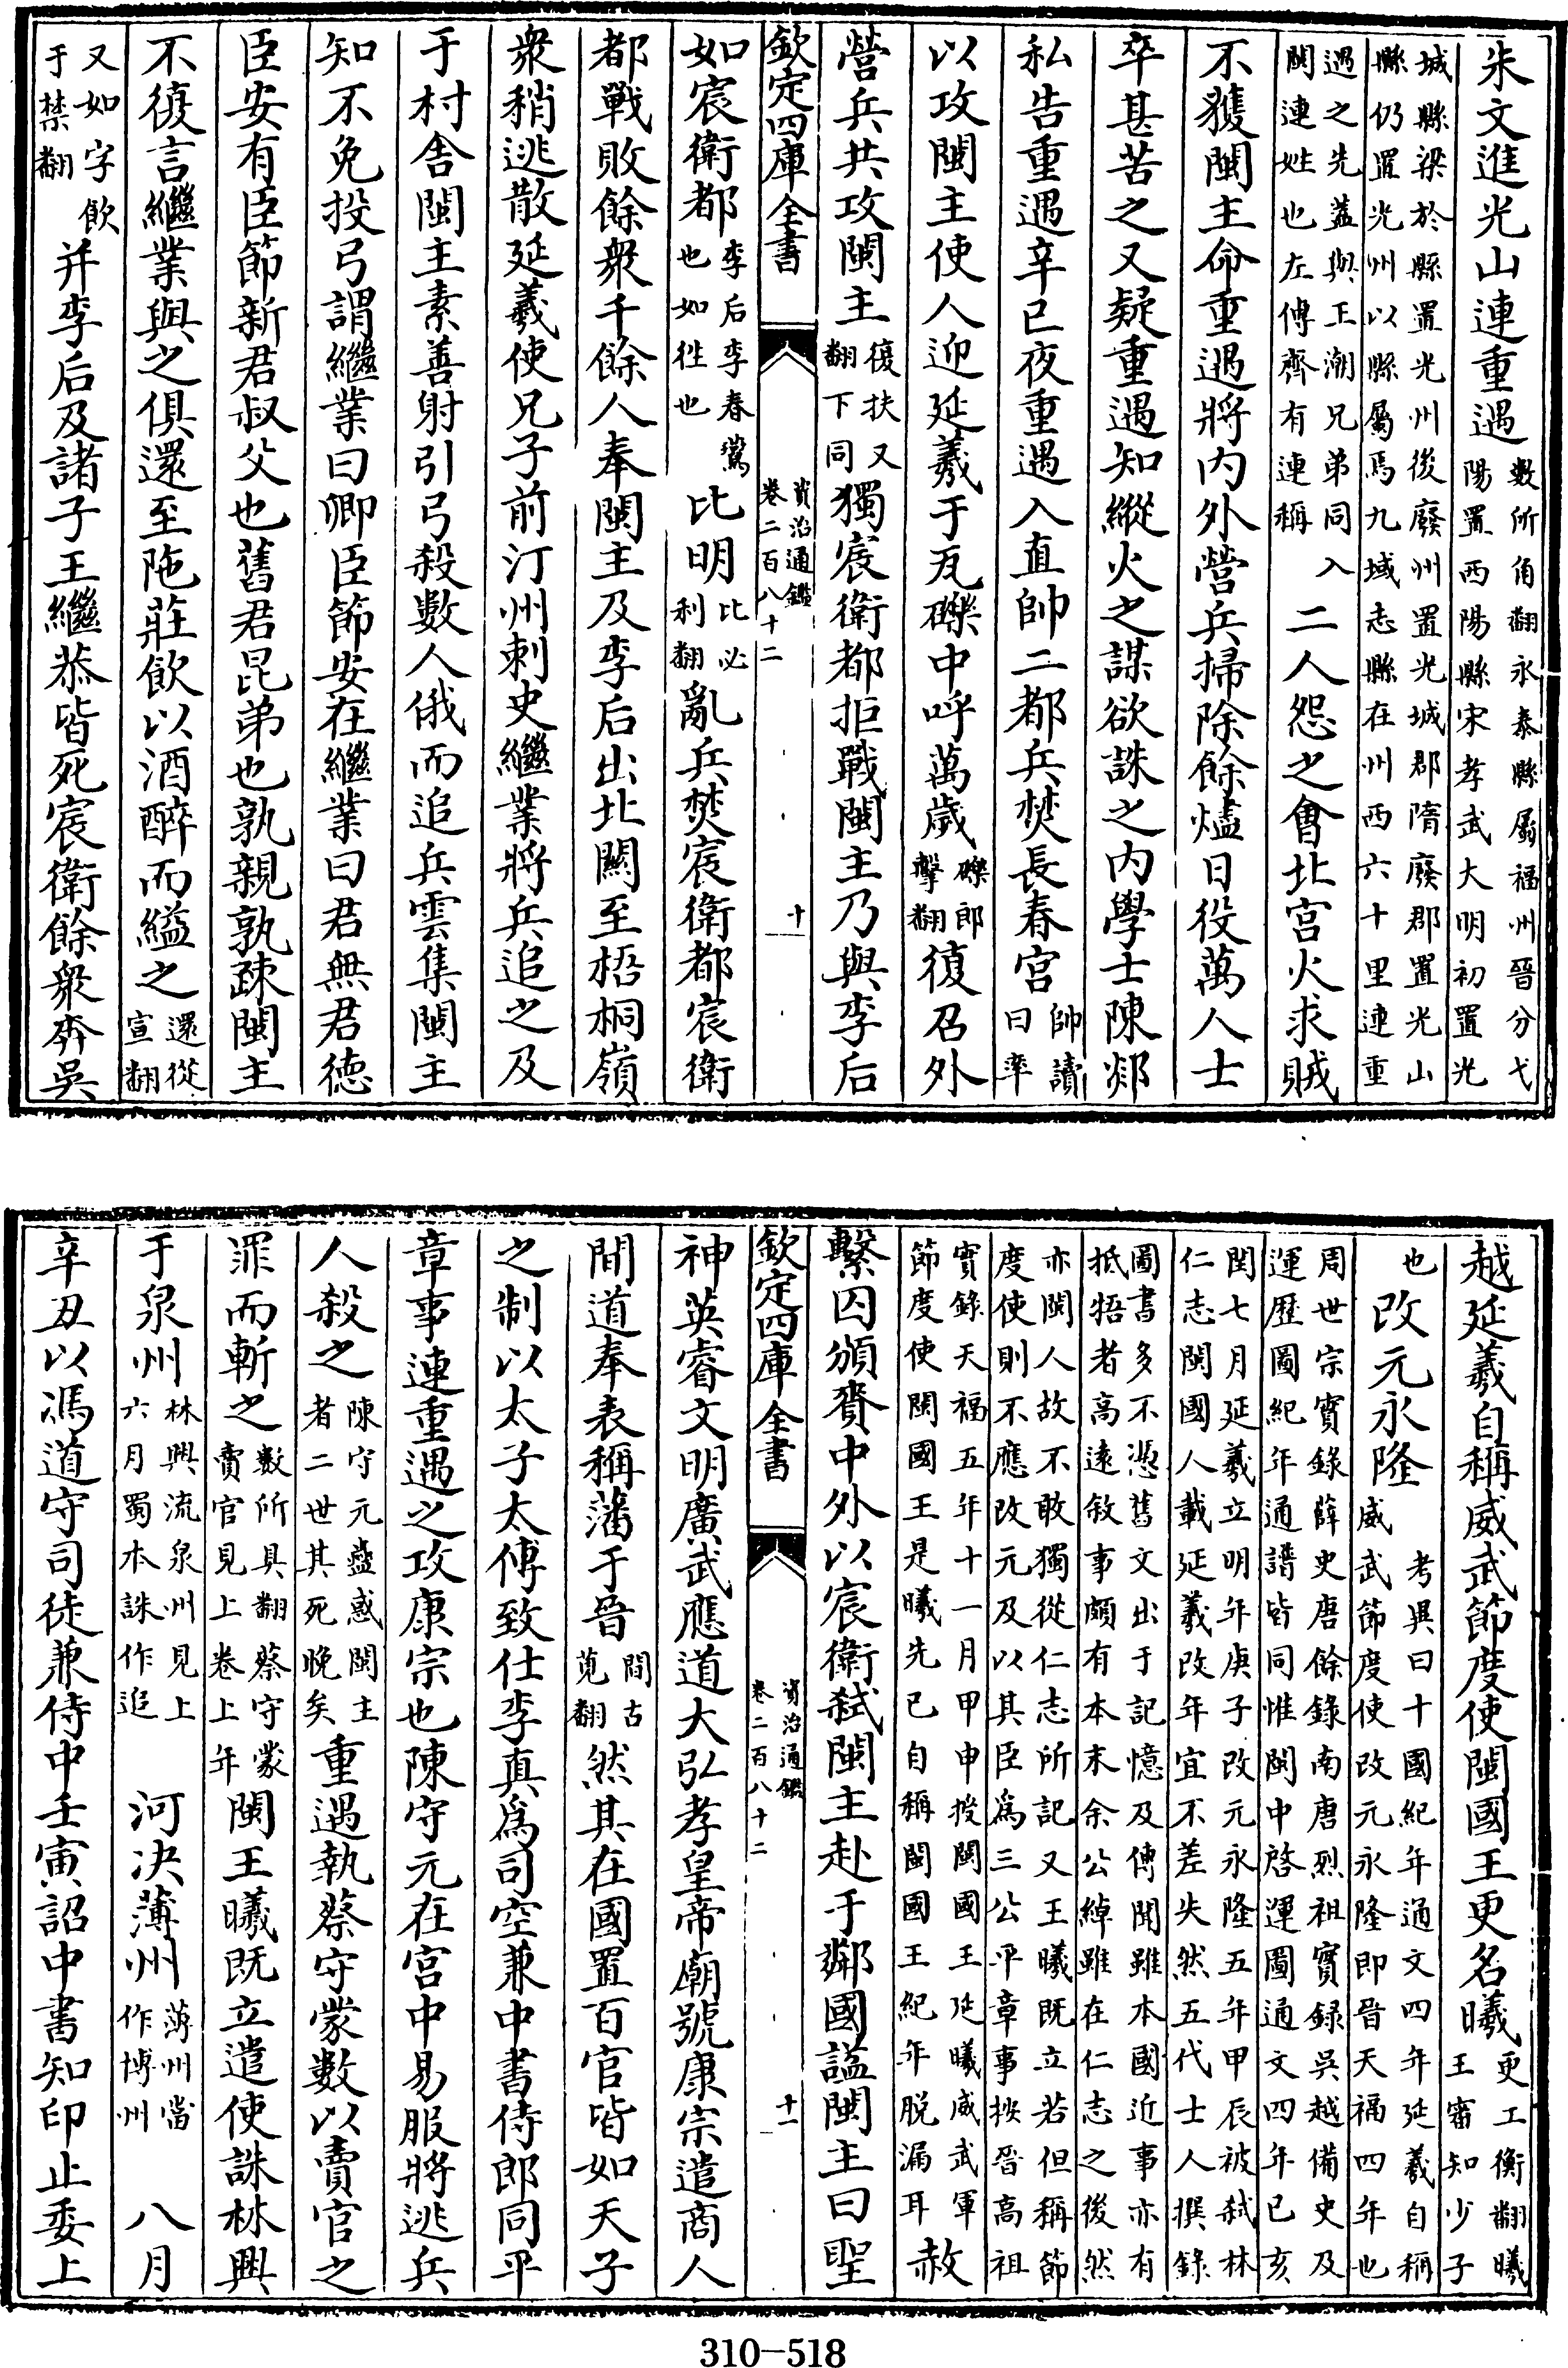 朱文進光山連重遇數所角翻永泰縣屬福州晉分弋
陽置西陽縣宋孝武大明初置光
城縣梁於縣置光州後廢州置光城郡隋廢郡置光山
縣仍置光州以縣屬焉九域志縣在州西六十里連重
遇之先蓋與王潮兄弟同入
閩連姓也左傳齊有連稱二人怨之會北宮火求賊
不獲閩主命重遇將內外營兵掃除餘燼日役萬人士
卒甚苦之又疑重遇知縱火之謀欲誅之內學士陳郯
私告重遇辛巳夜重遇入直帥二都兵焚長春宮帥讀
曰率
以攻閩主使人迎延羲于瓦礫中呼萬歲礫郎
擊翻復召外
營兵共攻閩主復扶又
翻下同獨宸衛都拒戰閩主乃與李后
欽定四庫全書
資治通鑑
卷二百八十二
十
如宸衛都李后李春鷰
也如徃也比明比必
利翻亂兵焚宸衛都宸衛
都戰敗餘衆千餘人奉閩主及李后出北關至梧桐嶺
衆稍逃散延羲使兄子前汀州刺史繼業將兵追之及
于村舎閩主素善射引弓殺數人俄而追兵雲集閩主
知不免投弓謂繼業曰卿臣節安在繼業曰君無君德
臣安有臣節新君叔父也舊君昆弟也孰親孰疎閩主
不復言繼業與之俱還至陁莊飲以酒醉而縊之還從
宣翻
又如字飲
于禁翻并李后及諸子王繼恭皆死宸衛餘衆奔吳
越延羲自稱威武節度使閩國王更名曦更工衡翻曦
王審知少子
也改元永隆考異曰十國紀年通文四年延羲自稱
威武節度使改元永隆即晉天福四年也
周世宗實錄薛史唐餘錄南唐烈祖實錄吳越備史及
運歷圖紀年通譜皆同惟閩中啓運圖通文四年已亥
閏七月延羲立明年庚子改元永隆五年甲辰被弒林
仁志閩國人載延羲改年宜不差失然五代士人撰錄
圖書多不憑舊文出于記憶及傳聞雖本國近事亦有
抵牾者高遠敘事頗有本末余公綽雖在仁志之後然
亦閩人故不敢獨從仁志所記又王曦既立若但稱節
度使則不應改元及以其臣爲三公平章事按晉高祖
實錄天福五年十一月甲申授閩國王延曦威武軍
節度使閩國王是曦先已自稱閩國王紀年脫漏耳赦
繫囚頒賚中外以宸衛弒閩主赴于鄰國諡閩主曰聖
欽定四庫全書
資治通鑑
卷二百八十二
十一
神英睿文明廣武應道大弘孝皇帝廟號康宗遣商人
間道奉表稱藩于晉間古
莧翻然其在國置百官皆如天子
之制以太子太傅致仕李真爲司空兼中書侍郎同平
章事連重遇之攻康宗也陳守元在宮中易服將逃兵
人殺之陳守元蠱惑閩主
者二世其死晚矣重遇執蔡守蒙數以賣官之
罪而斬之數所具翻蔡守蒙
賣官見上卷上年閩王曦既立遣使誅林興
于泉州林興流泉州見上
六月蜀本誅作追河决薄州薄州當
作博州八月
辛丑以馮道守司徒兼侍中壬寅詔中書知印止委上
310-518